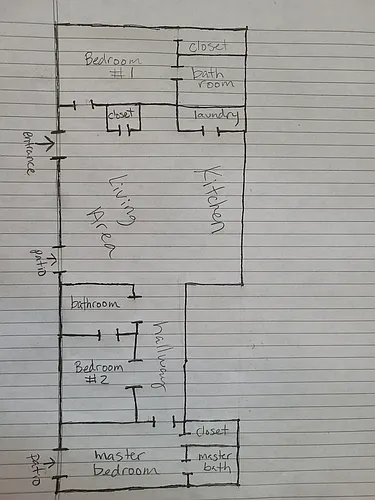 closet
Bedroom
#1
bath
room
closet
laundry
entrance
Living
Area
Kitchen
patio
bathroom
hallway
Bedroom
#2
closet
master
bedroom
master
bath
patio